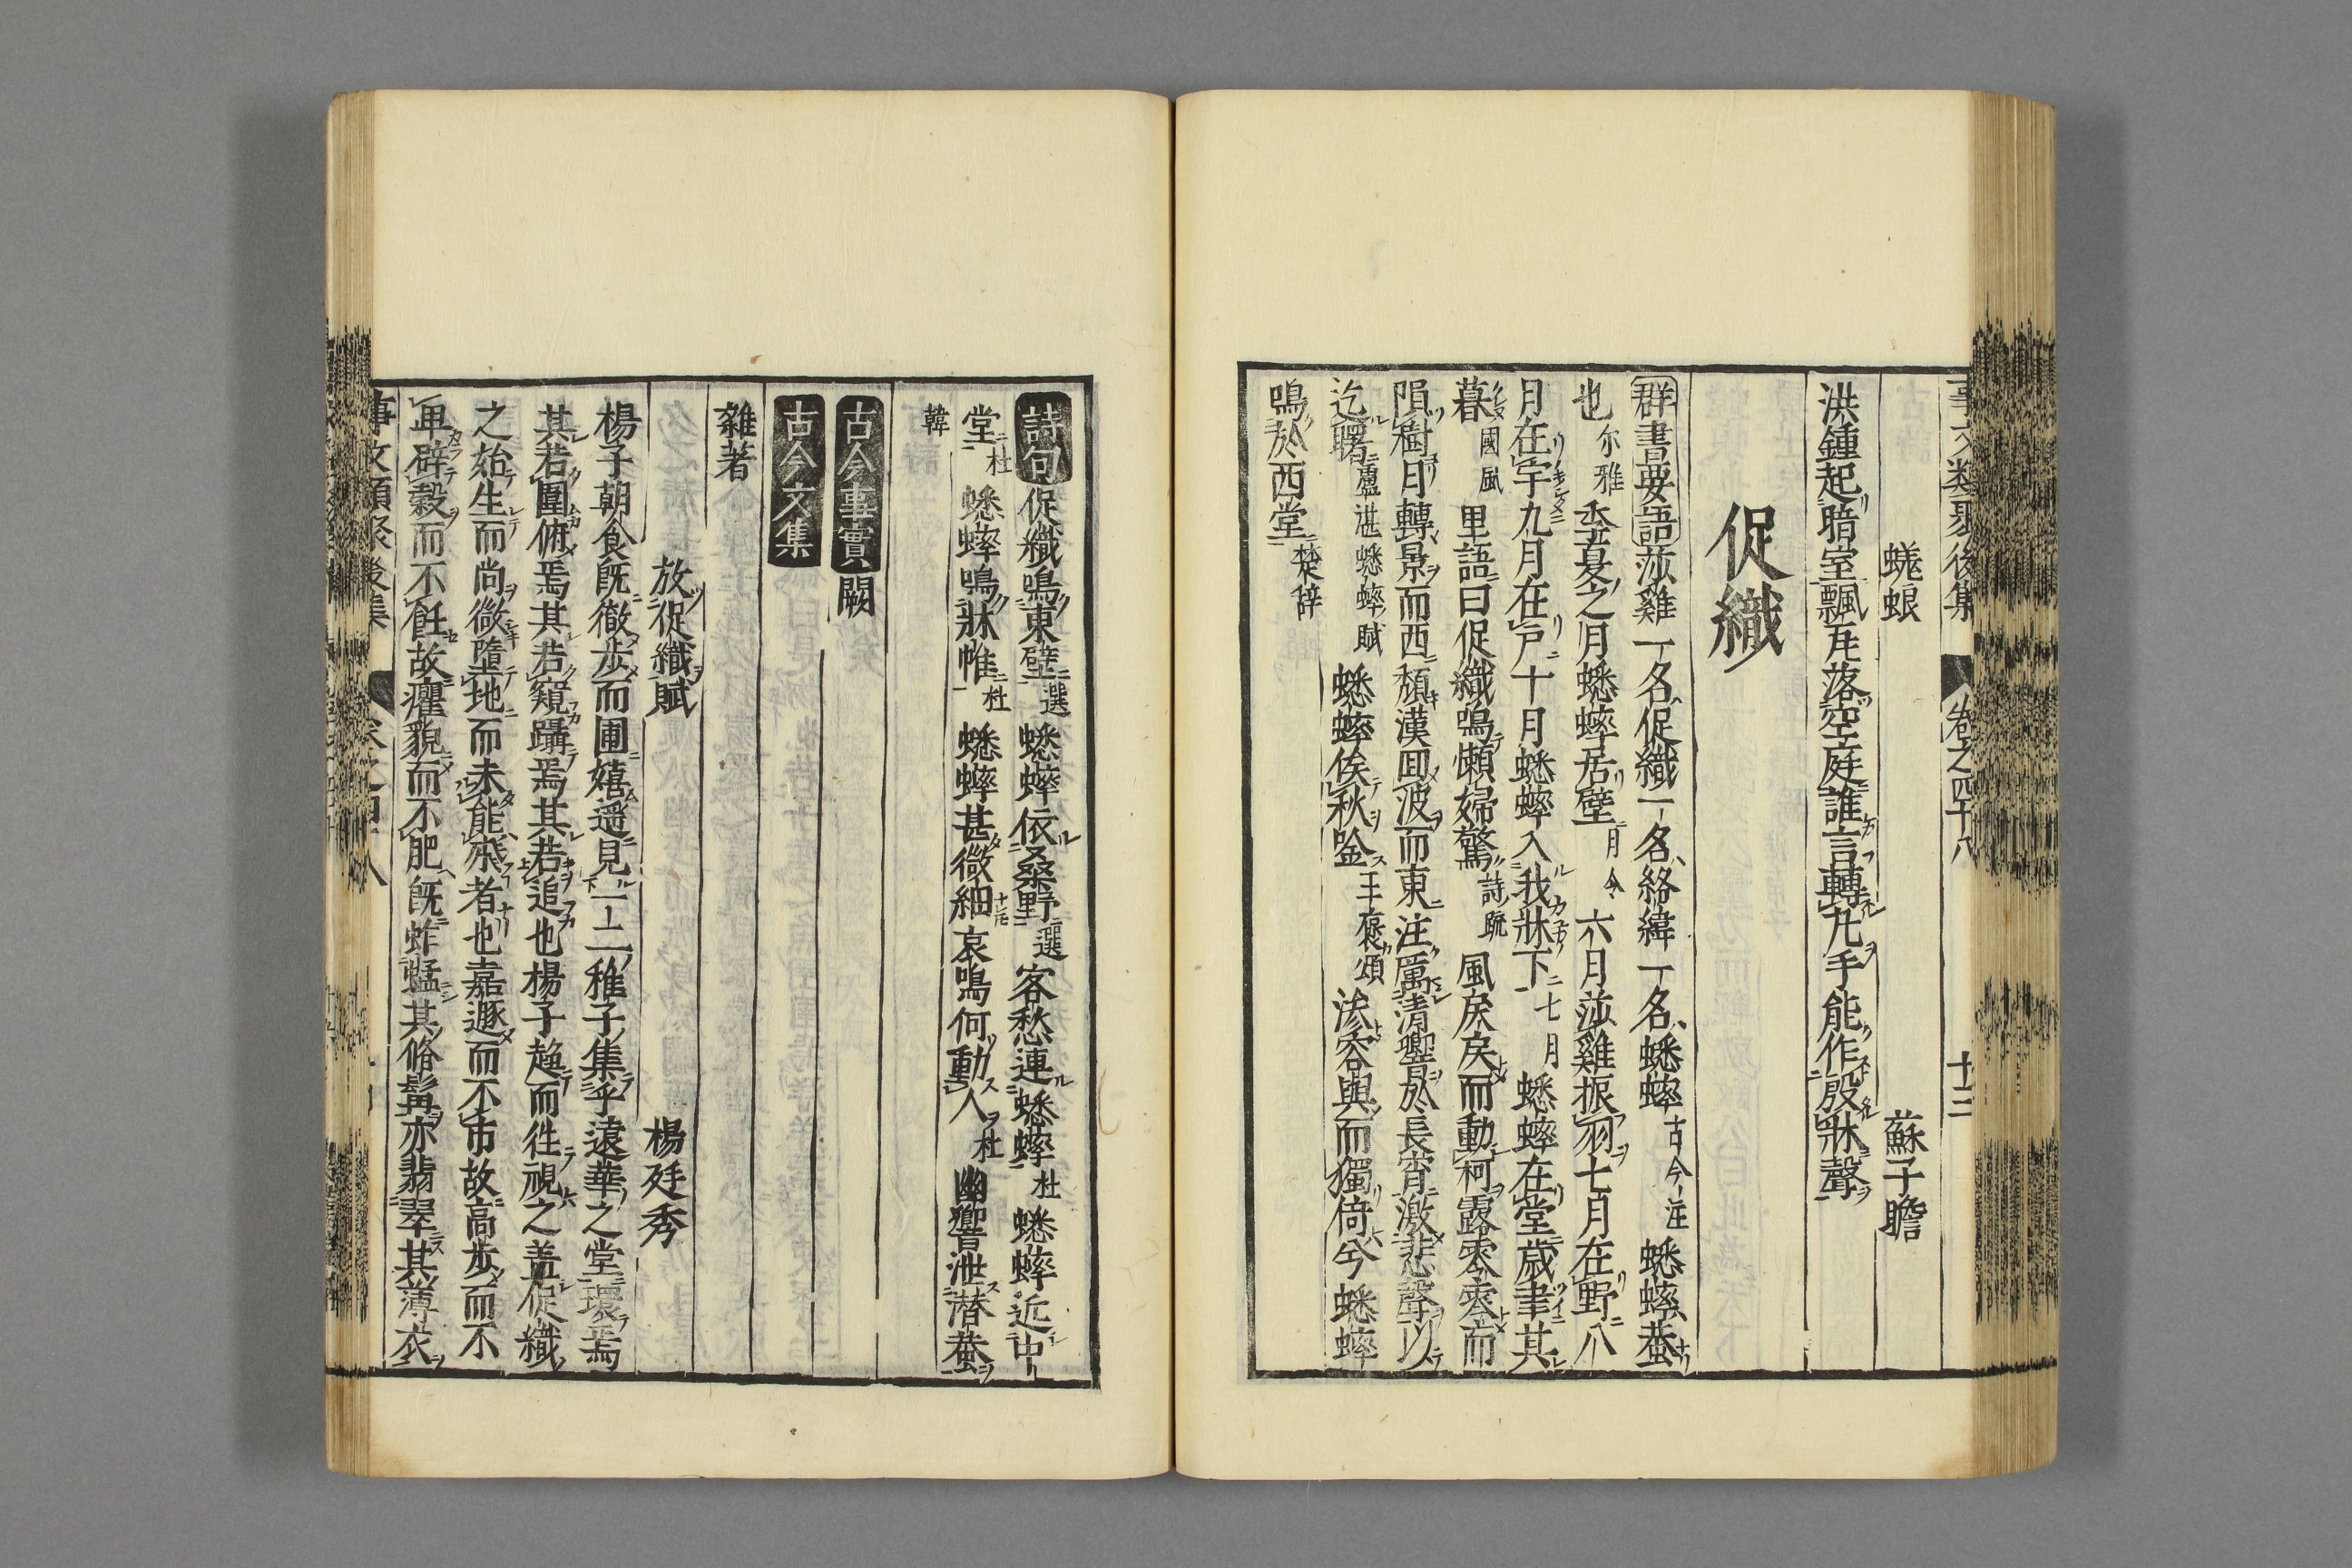 事文類聚後集 卷之四十八 十三
蜣蜋 蘇子瞻
洪鍾起暗室飄瓦落空庭誰言轉丸手能作殷牀聲
促織
群書要語莎雞一名促織一名絡緯一名蟋蟀古今注蟋蟀蛬
也尔雅季夏之月蟋蟀居壁月令六月莎雞振羽七月在野八
月在宇九月在戸十月蟋蟀入我牀下七月蟋蟀在堂歲聿其
暮國風里語曰促織鳴懶婦驚詩疏風戾戾而動柯露零零而
隕樹月轉景而西頽漢囬波而東注厲清響於長宵激悲聲以
迄曙盧諶蟋蟀賦蟋蟀俟秋唫王褒頌滲容與而獨倚兮蟋蟀
鳴於西堂楚辞
詩句促織鳴東壁選蟋蟀依桑野選客愁連蟋蟀杜蟋蟀近中
堂杜蟋蟀鳴牀帷杜蟋蟀甚微細哀鳴何動人杜幽響泄潜蛬
韓
古今事實闕
古今文集
雜著
放促織賦 楊廷秀
楊子朝食既徹步而圃嬉遥見一二稚子集乎遠華之堂環焉
其若圍俯焉其若窺躡焉其若追也楊子趨而徃視之盖促織
之始生而尚微墮地而未能飛者也嘉遯而不市故高步而不
卑辟穀而不飪故癯貌而不肥既蚱蜢其脩髯亦翡翠其薄衣